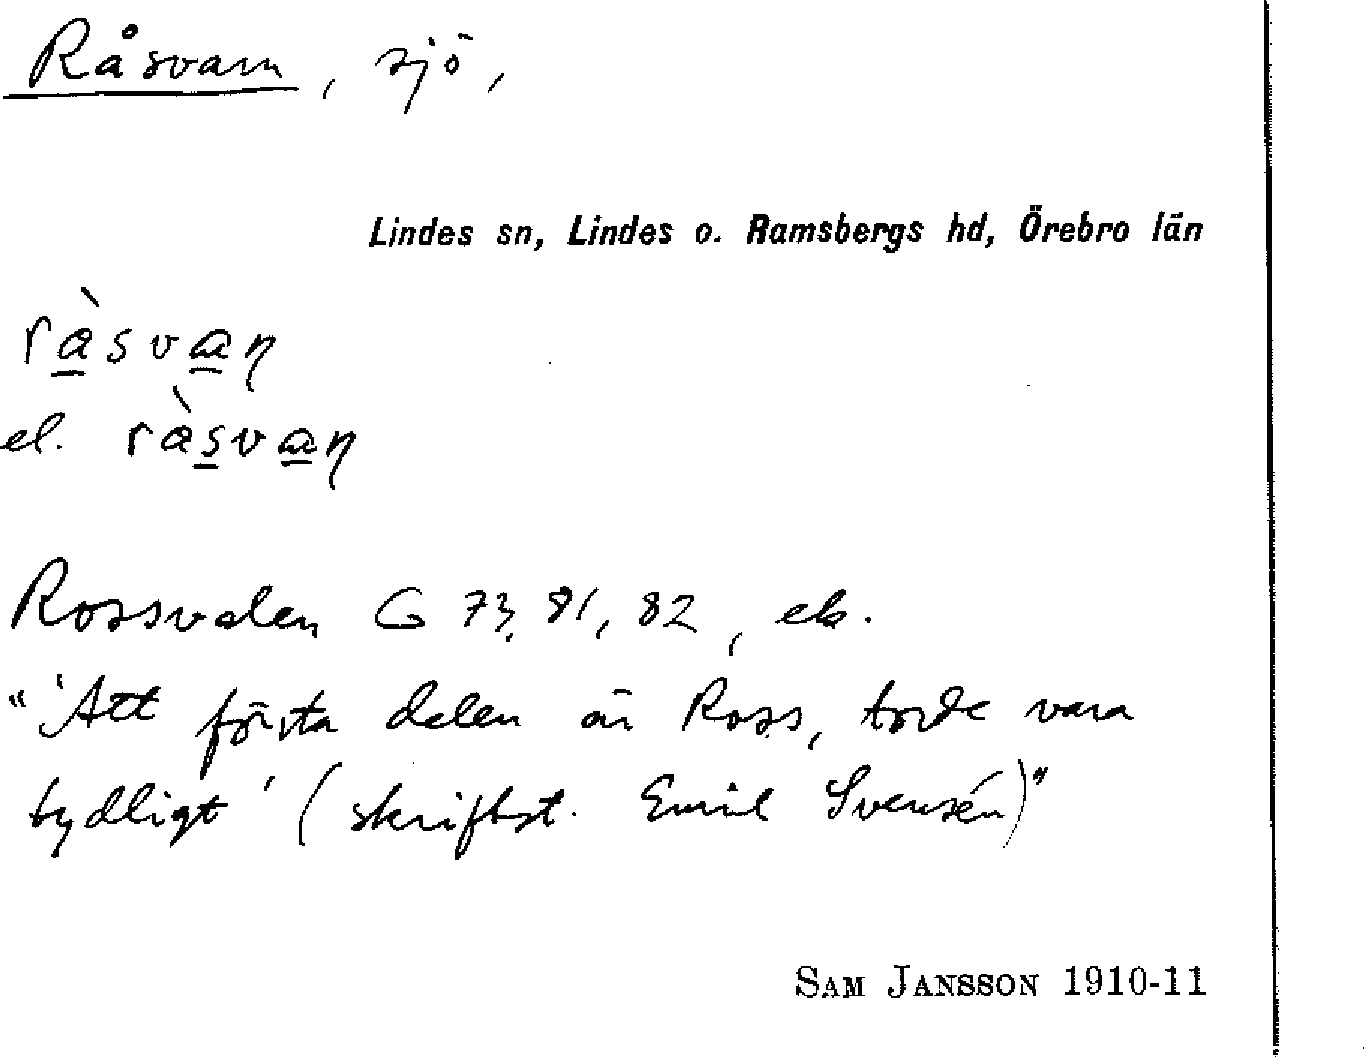 Råsvarn, sjö,
Lindes sn, Lindes o. Ramsbergs hd, Örebro län
ràsvaη
el. ràsvaη
Rossvalen G 73, 81, 82, ek.
"'Att första delen är Ross, torde vara
tydligt' (skriftst. Emil Svensén)"
SAM JANSSON 1910-11